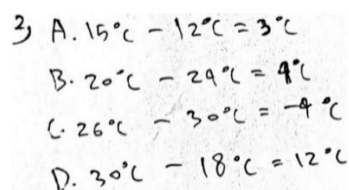 3, A. 15°C - 12°C = 3°C
B. 20°C - 29°C = 9°C
C. 26°C - 30°C = -4°C
D. 30°C - 18°C = 12°C